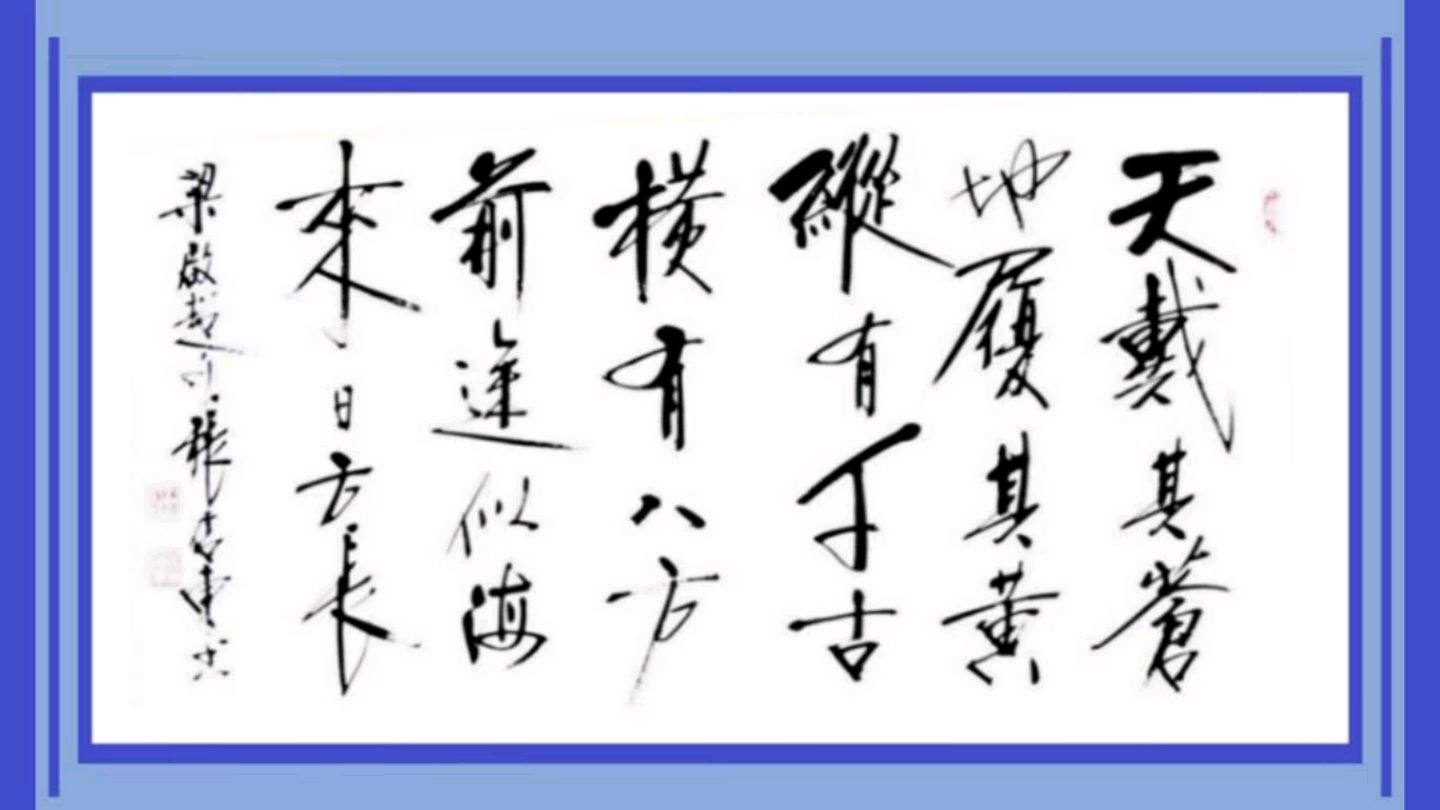 天戴其蒼
地履其黃
縱有千古
橫有八方
前途似海
來日方長
梁啟超句 張書